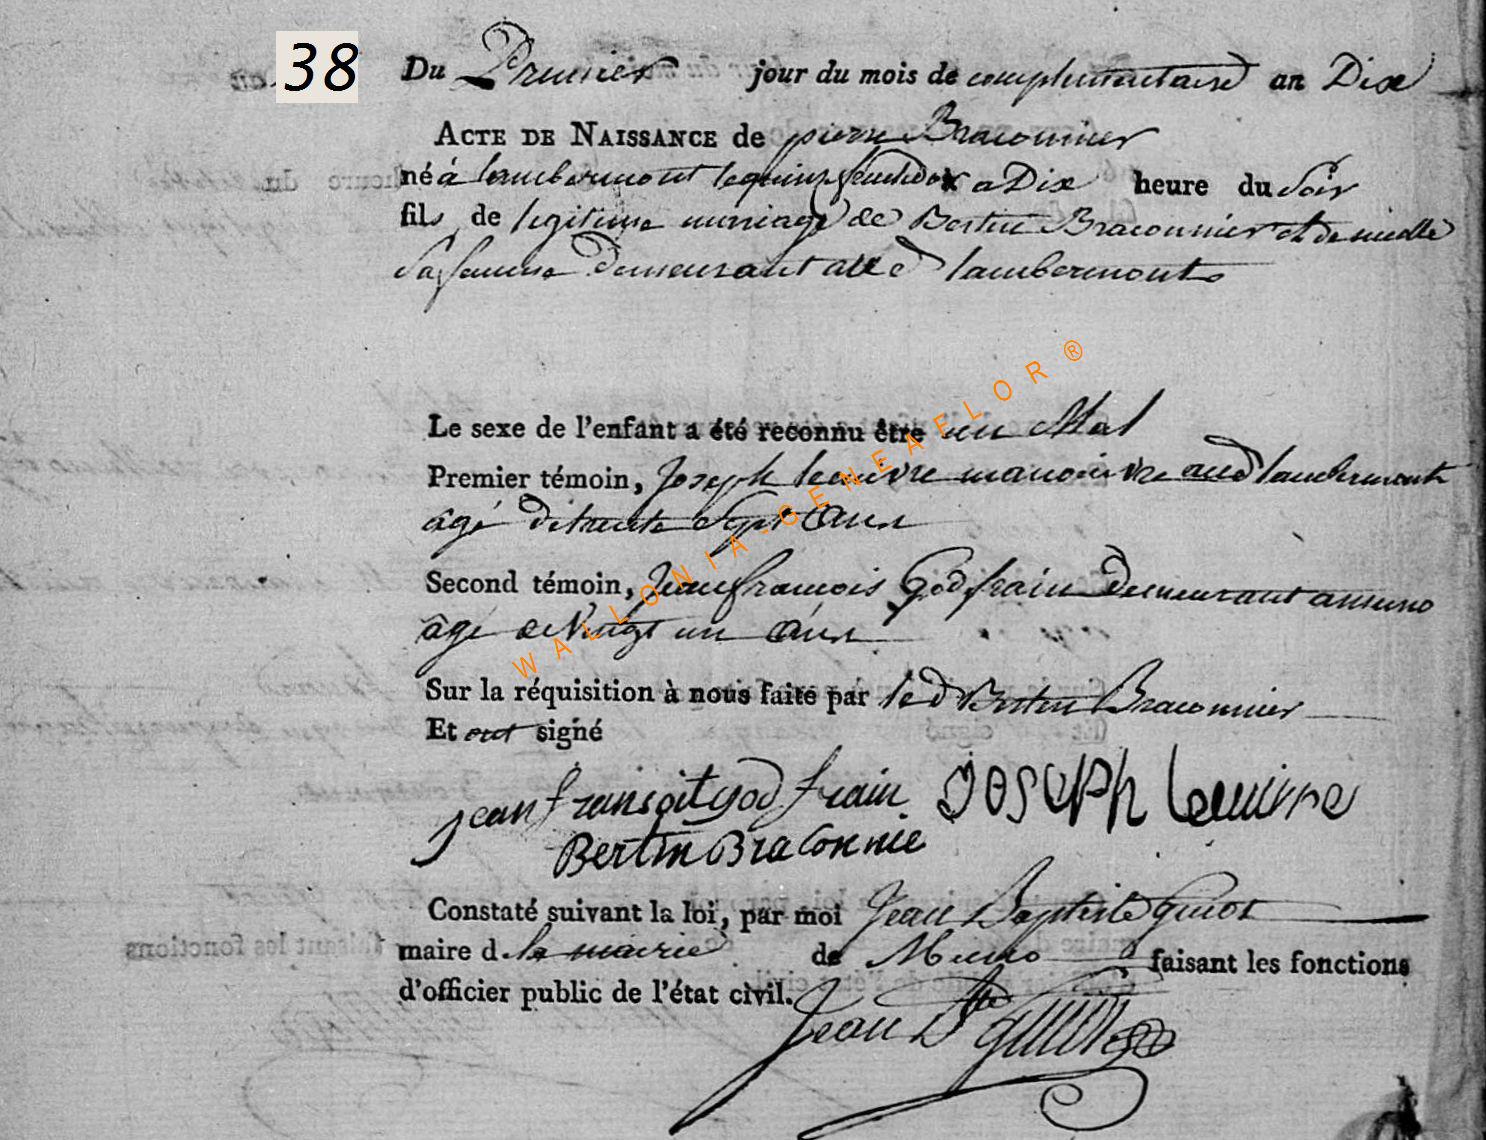 38
Du Premier jour du mois de complementaire an Dix
ACTE DE NAISSANCE de pierre Braconnier
né à lambermont le quinze fructidor a Dix heure du Soir
fils de legitime mariage de Bertin Braconnier et de
Sa femme Demeurant au d lambermont
Le sexe de l'enfant a été reconnu être un Mal
Premier témoin, Joseph lecuivre manoeuvre au d lambermont
âgé de trente Sept ans
Second témoin, Jean francois Godfrain Demeurant a muno
âgé de Vingt un ans
Sur la réquisition à nous faite par led Bertin Braconnier
Et ont signé
jean fransoit god frain JOSEPh lecuivre
Bertin Braconnie
Constaté suivant la loi, par moi Jean Baptiste guiot
maire d la mairie de Muno faisant les fonctions
d'officier public de l'état civil.
Jean Bte guiot
WALLONIA-GENEAFLOR®